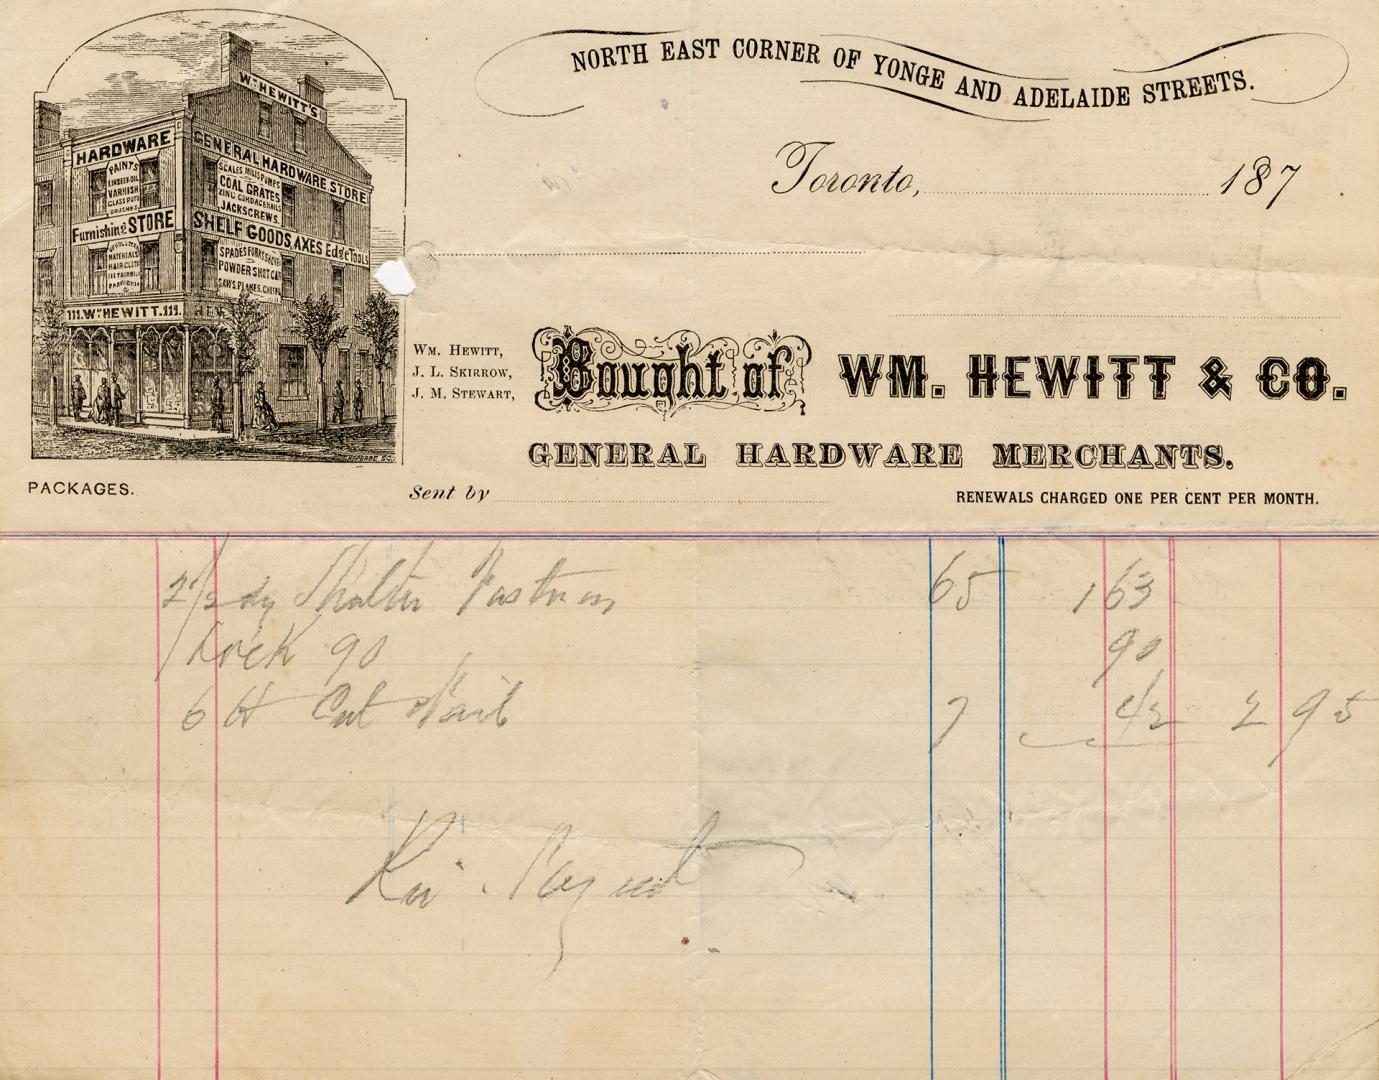 NORTH EAST CORNER OF YONGE AND ADELAIDE STREETS.
Toronto, 187
Wm HEWITT'S
HARDWARE
GENERAL HARDWARE STORE
PAINTS
LINSEED OIL
VARNISH
GLASS PUTTY
BRUSHES
SCALES MILLS PUMPS
COAL GRATES
ZINC CORDAGE NAILS
JACKSCREWS.
Furnishing STORE
SHELF GOODS, AXES Edge Tools
MATERIALS
HAIR CLOTH
SPADES FORKS SHOVELS
POWDER SHOT CAPS
SAWS, PLANES, CHISEL
111. Wm HEWITT. 111. HEW
WM. HEWITT,
J. L. SKIRROW,
J. M. STEWART,
Bought of WM. HEWITT & CO.
GENERAL HARDWARE MERCHANTS.
PACKAGES.
Sent by
RENEWALS CHARGED ONE PER CENT PER MONTH.
2 1/2 dz Shutter Fastners 65 1 63
1 Lock 90 90
6 lb Cut Nails 7 42 2 95
Payment